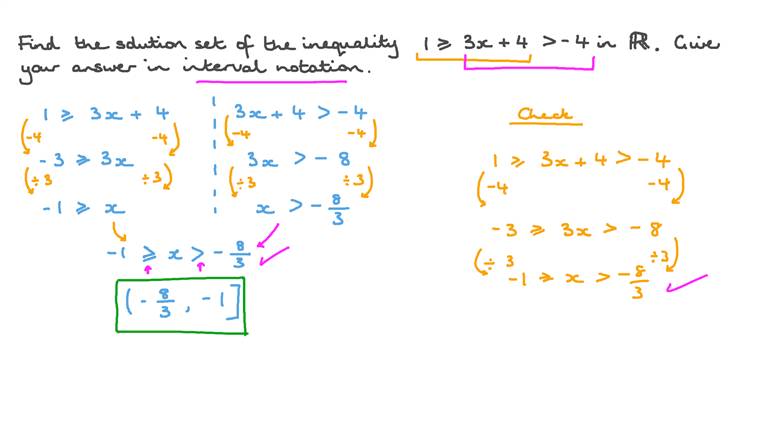 Find the solution set of the inequality 1 ⩾ 3x + 4 > -4 in ℝ. Give
your answer in interval notation.
1 ⩾ 3x + 4
-4 -4
-3 ⩾ 3x
÷3 ÷3
-1 ⩾ x
3x + 4 > -4
-4 -4
3x > -8
÷3 ÷3
x > -8/3
-1 ⩾ x > -8/3
(-8/3, -1]
Check
1 ⩾ 3x + 4 > -4
-4 -4
-3 ⩾ 3x > -8
÷3 ÷3
-1 ⩾ x > -8/3